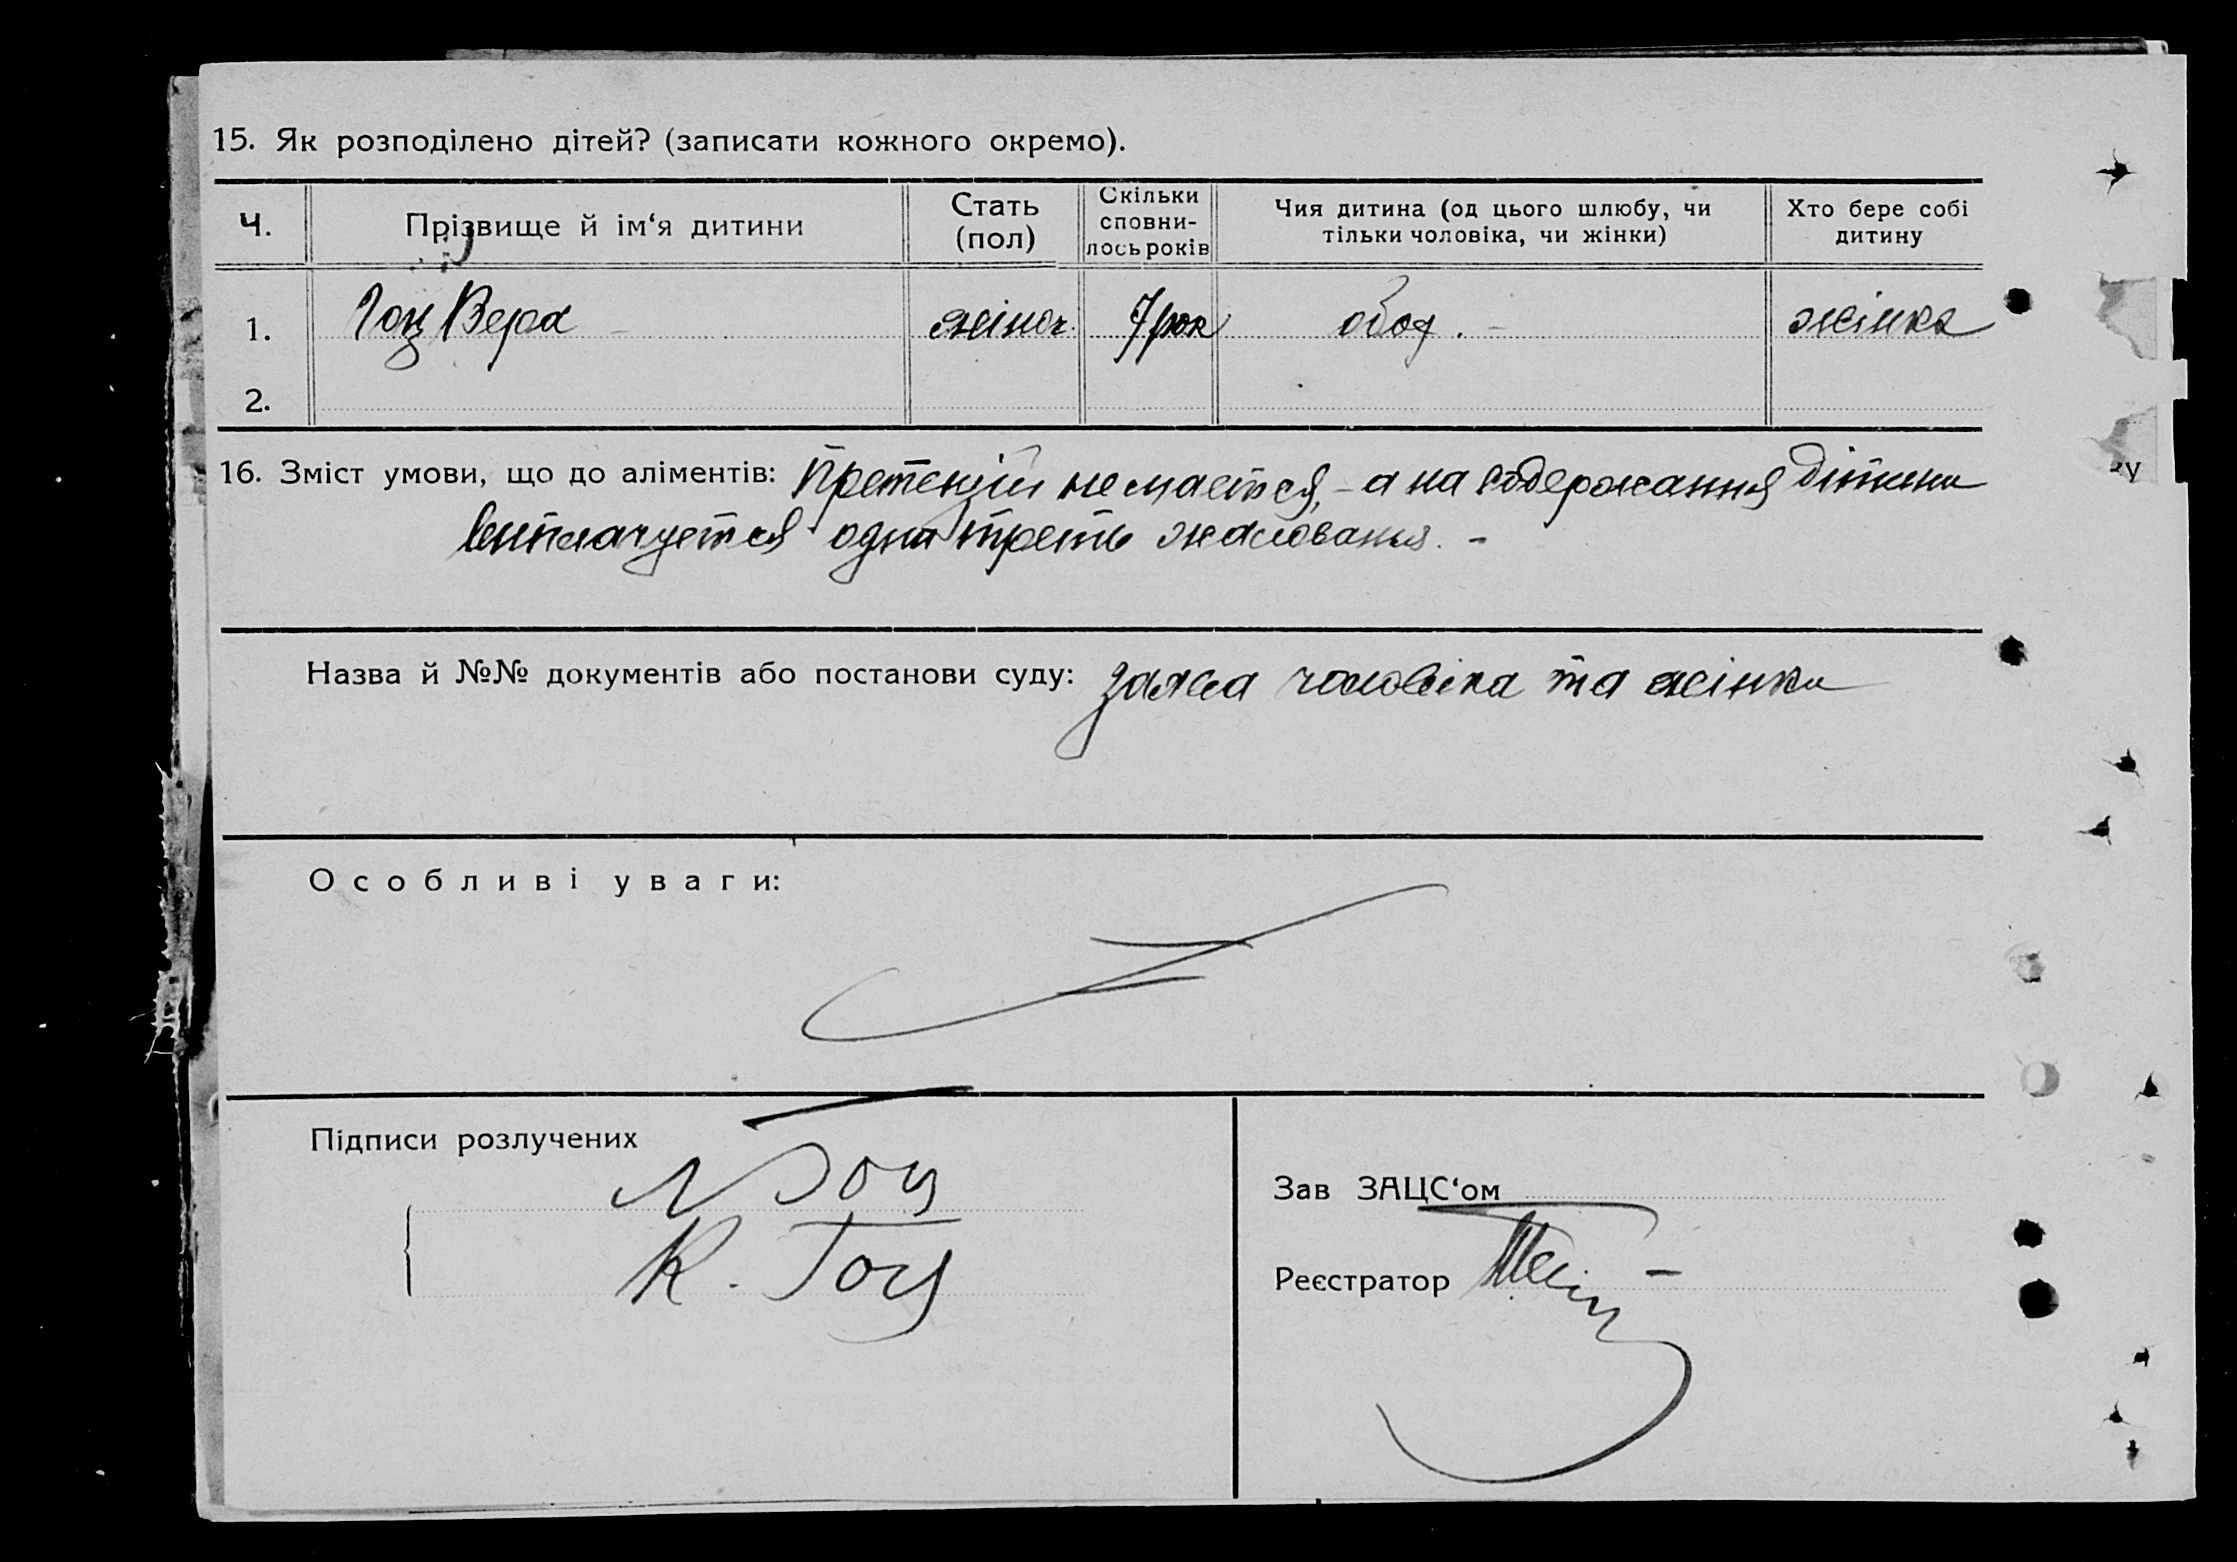 15. Як розподілено дітей? (записати кожного окремо).
Ч. Прізвище й ім‘я дитини Стать (пол) Скільки сповни-лось років Чия дитина (од цього шлюбу, чи тільки чоловіка, чи жінки) Хто бере собі дитину
1. Гоц Вера жіноч. 7 рок обоя. жінка
2.
16. Зміст умови, що до аліментів: Претензій не мається, - а на содержання дітини
виплачуется одна треть жалования. -
Назва й №№ документів або постанови суду: заява чоловіка та жінки
Особливі уваги:
Підписи розлучених
Гоц
К. Гоц
Зав ЗАЦС‘ом
Реєстратор